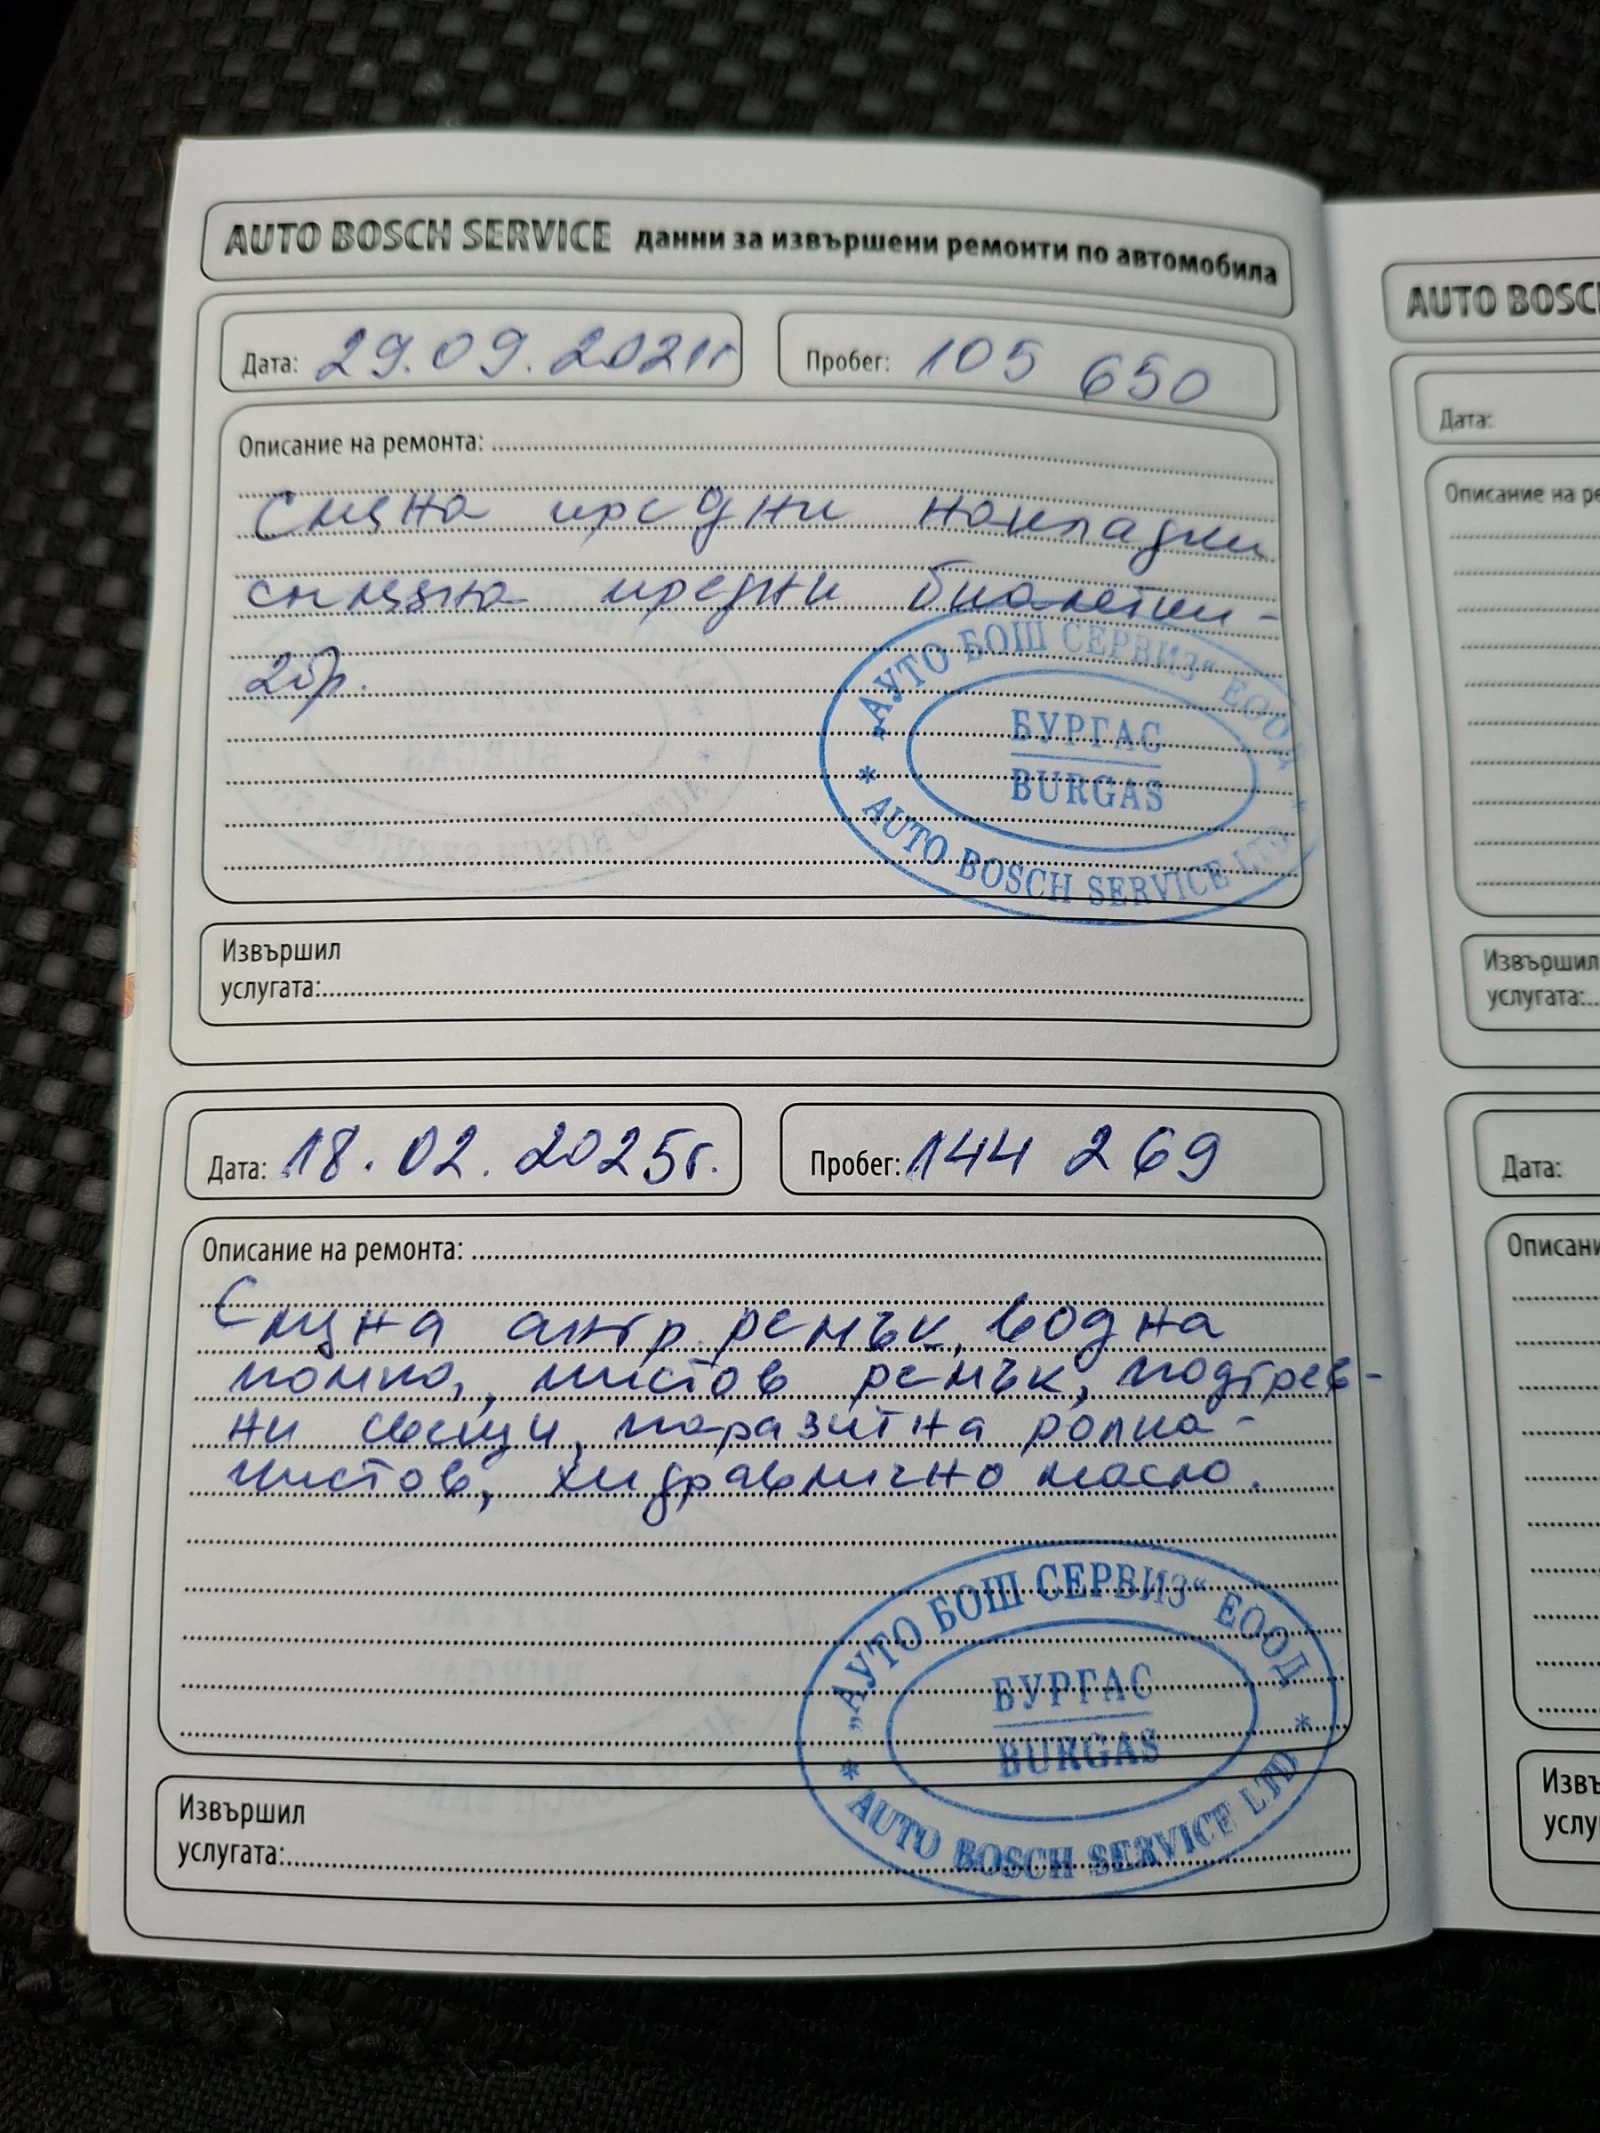 AUTO BOSCH SERVICE данни за извършени ремонти по автомобила
Дата: 29.09.2021г
Пробег: 105 650
Описание на ремонта:
Смяна предни накладки
смяна предни биалетки -
2бр.
„АУТО БОШ СЕРВИЗ“ ЕООД
БУРГАС
BURGAS
* AUTO BOSCH SERVICE LTD *
Извършил
услугата:
Дата: 18.02.2025г.
Пробег: 144 269
Описание на ремонта:
Смяна ангр. ремък, водна
помпа, пистов ремък, подгрев-
ни свещи, паразитна ролка -
пистов, хидравлично масло.
„АУТО БОШ СЕРВИЗ“ ЕООД
БУРГАС
BURGAS
* AUTO BOSCH SERVICE LTD *
Извършил
услугата:
AUTO BOSC
Дата:
Описание на ре
Извършил
услугата:
Дата:
Описани
Извъ
услу